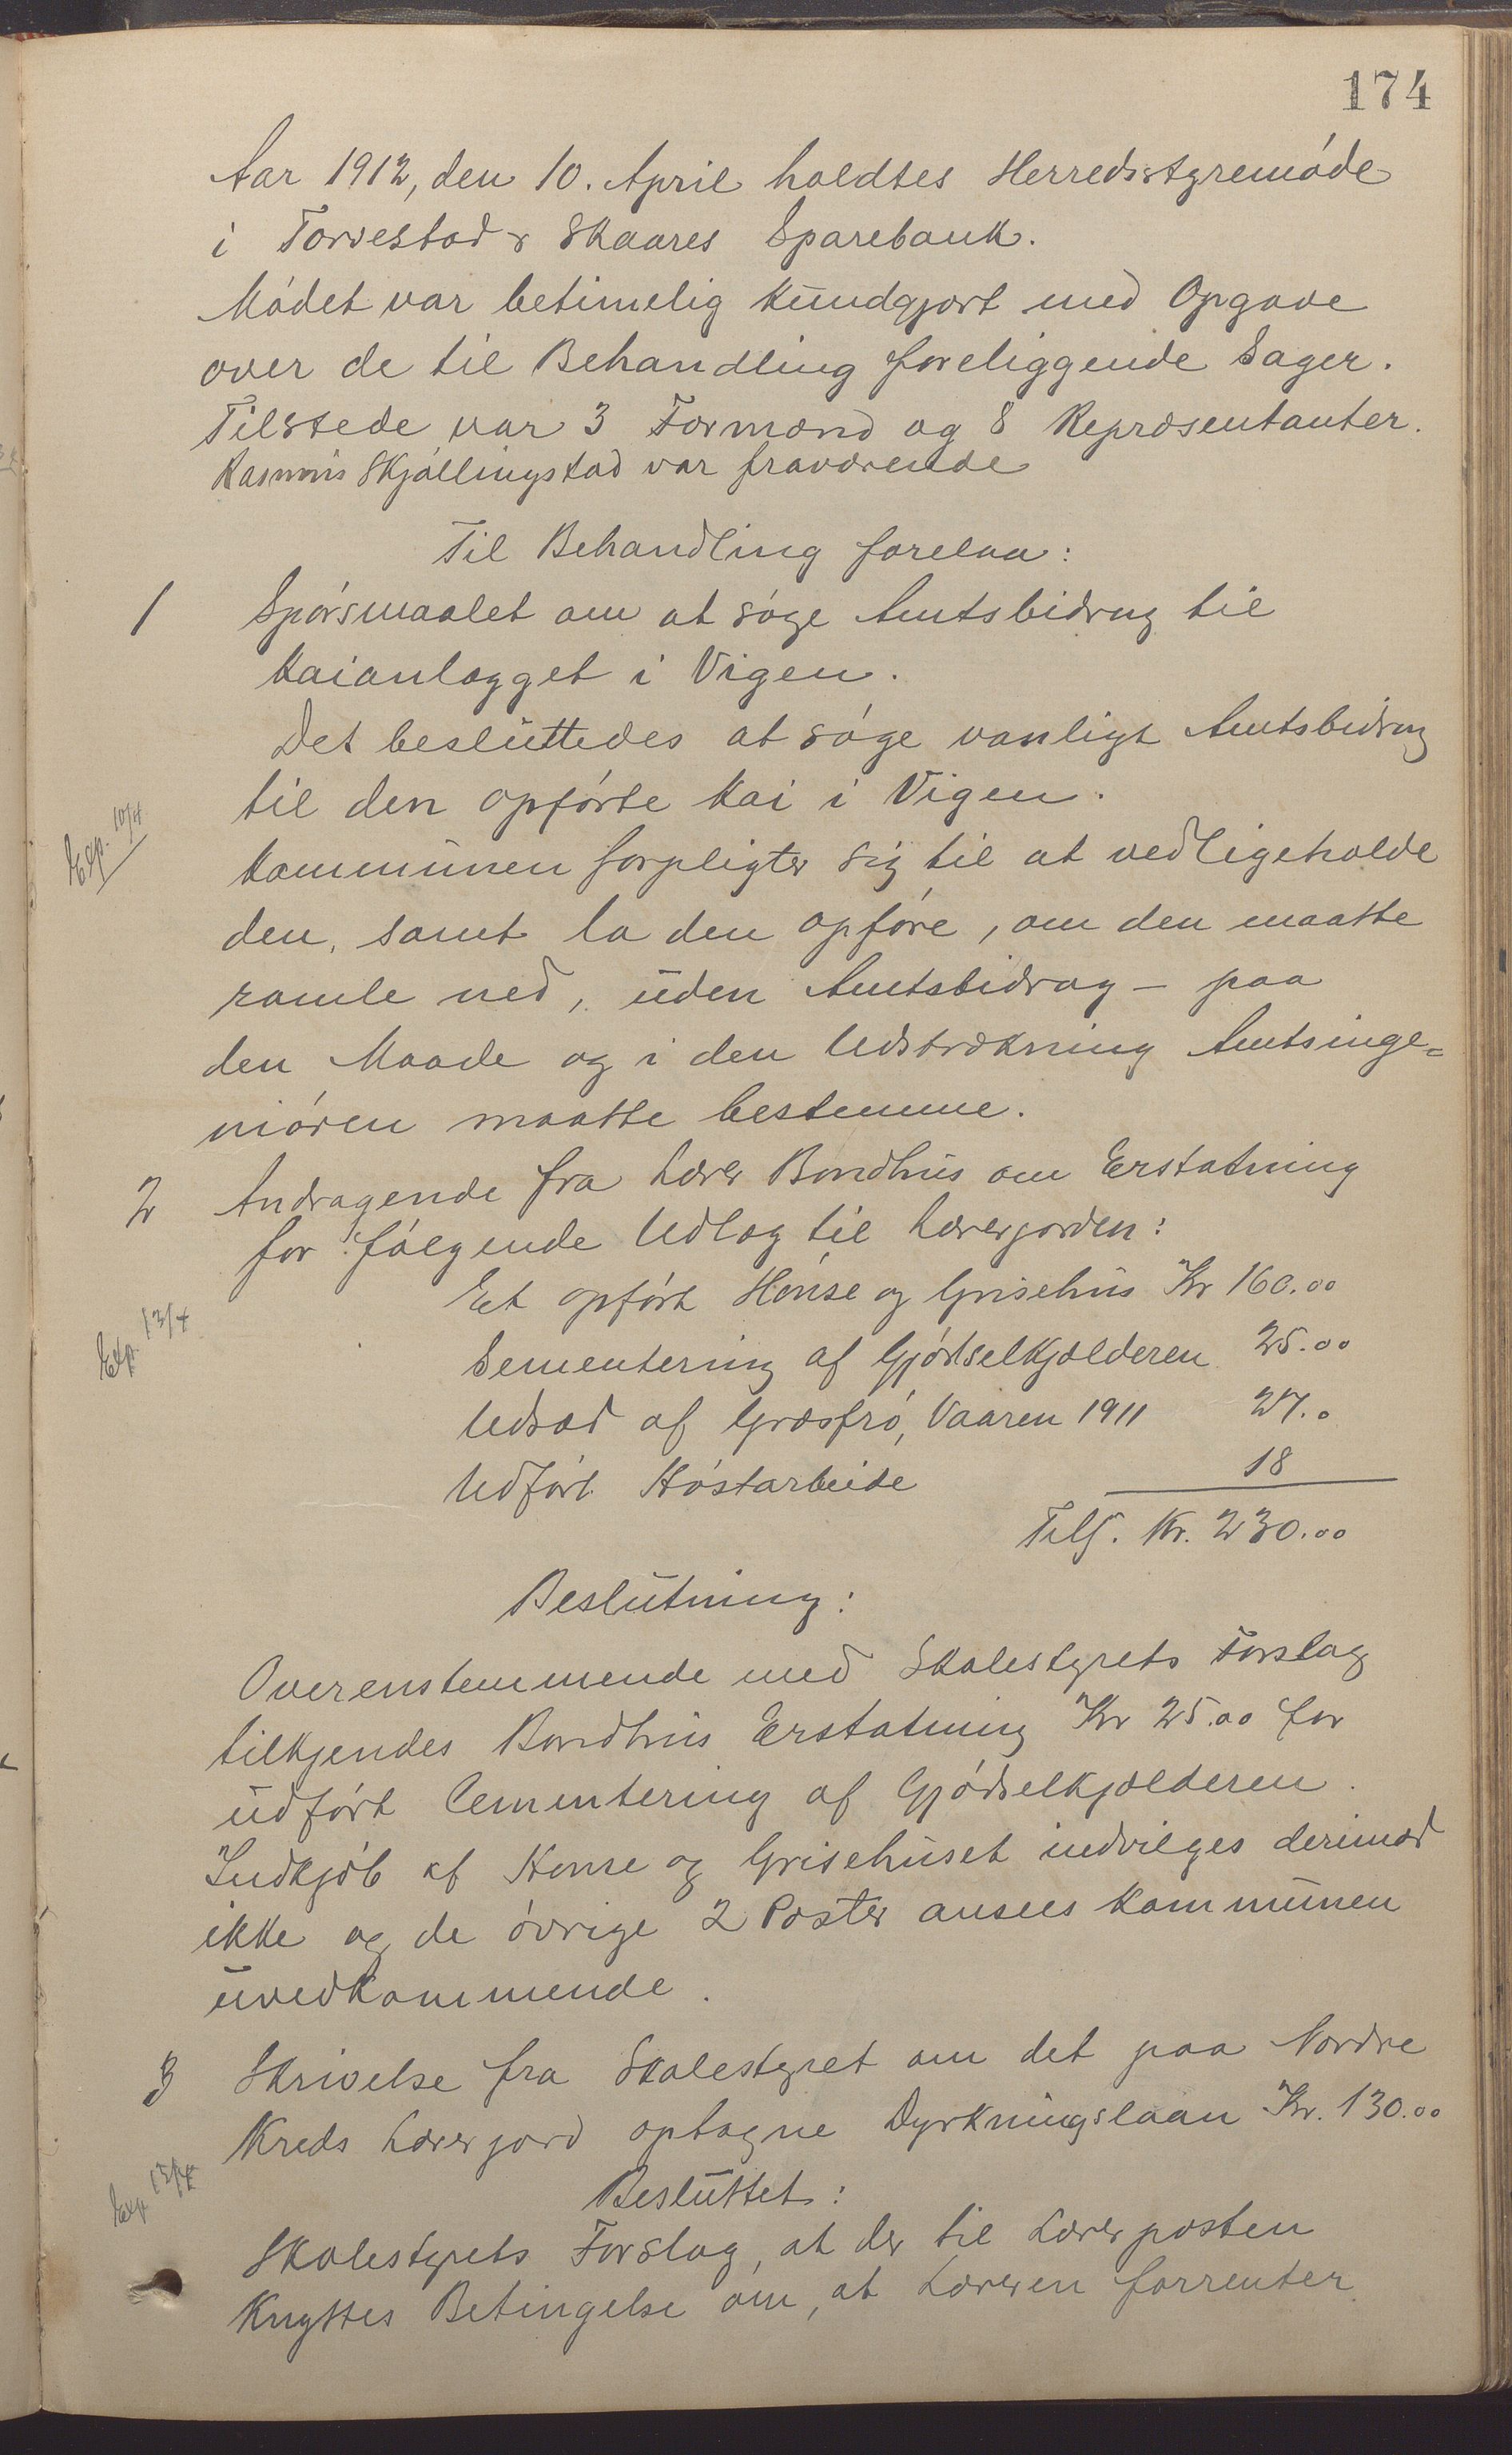 174
Aar 1912, den 10. April holdtes Herredsstyremøde
i Torvestad & Skaares Sparebank.
Mødet var betimelig kundgjort med Opgave
over de til Behandling foreliggende Sager.
Tilstede var 3 Formænd og 8 Repræsentanter.
Rasmus Skjøllingstad var fraværende
Til Behandling forelaa:
1 Spørsmaalet om at søge Amtsbidrag til
Kaianlægget i Vigen.
Det besluttedes at søge vanligt Amtsbidrag
til den opførte Kai i Vigen.
Exp. 10/4
Kommunen forpligter sig til at vedligeholde
den, samt la den opføre, om den maatte
ramle ned, uden Amtsbidrag – paa
den Maade og i den Udstrækning Amtsinge=
niøren maatte bestemme.
2 Andragende fra Lærer Bondhus om Erstatning
for følgende Udlæg til Lærerjorden:
Et opført Hønse og Grisehus Kr 160.00
Exp. 13/4
Sementering af Gjødselkjælderen 25.00
Udsæd af Græsfrø, Vaaren 1911 27.0
Udført Høstarbeide 18
Tils. Kr. 230.00
Beslutning:
Overenstemmende med Skolestyrets Forslag
tilkjendes Bondhus Erstatning Kr 25.00 for
udført Cementering af Gjødselkjælderen.
Indkjøb af Hønse og Grisehuset indvilges derimod
ikke og de øvrige 2 Poster ansees Kommunen
uvedkommende.
3 Skrivelse fra Skolestyret om det paa Nordre
Kreds Lærerjord optagne Dyrkningslaan Kr. 130.00
Exp. 13/4
Besluttet:
Skolestyrets Forslag, at der til Lærerposten
Knyttes Betingelse om, at Læreren forrenter